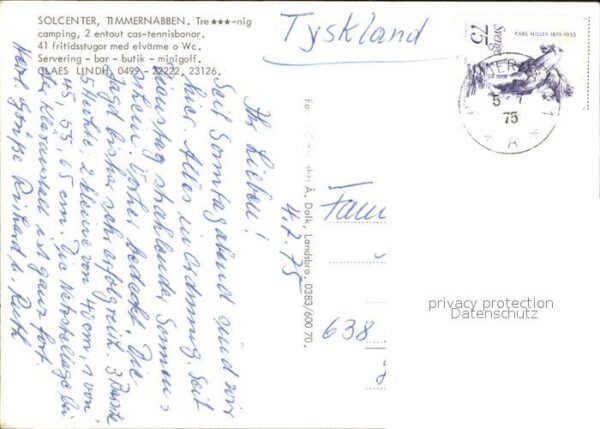 SOLCENTER, TIMMERNABBEN. Tre★★★-nig
camping, 2 entout cas-tennisbanor.
41 fritidsstugor med elvärme o Wc.
Servering - bar - butik - minigolf.
CLAES LINDH, 0499 - 22222, 23126.
Tyskland
Sverige
75
CARL MILLES 1875-1955
5 7
75
1 ★ A ★ 1
4.7.75
Ihr Lieben!
Seit Sonntagabend sind wir
hier. Alles in Ordnung. Seit
Dienstag strahlender Sonnen=
schein. Vorher bedeckt. Die
Jagd bisher sehr erfolgreich. 3
Hechte 2 kleine von 40 cm, 1 von
45, 55, 65 cm. Die
ist ganz fort.
Herzl. Grüße Richard u. Ruth
Å. Dolk, Landsbro. 0383/600 70.
Fam
638
privacy protection
Datenschutz